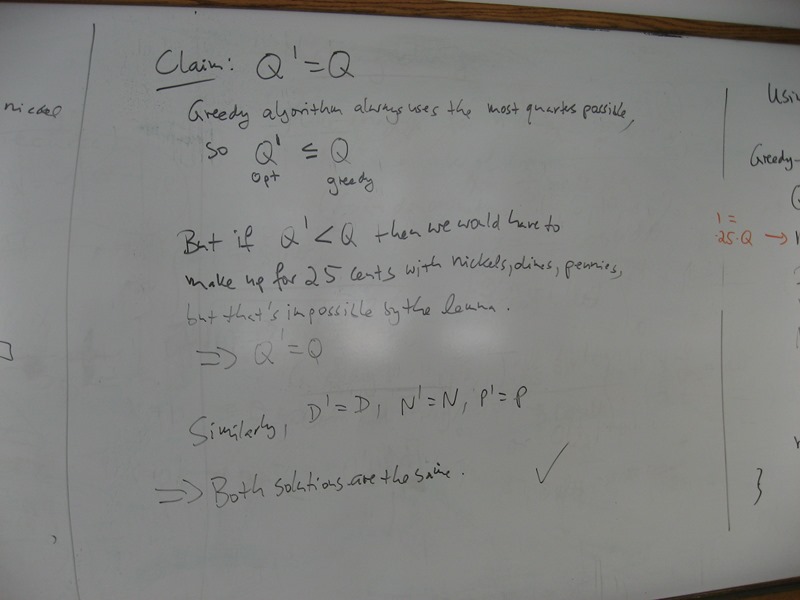 nickel
Claim: Q' = Q
Greedy algorithm always uses the most quarters possible,
so Q' ≤ Q
opt greedy
But if Q' < Q then we would have to
make up for 25 cents with nickels, dimes, pennies,
but that's impossible by the lemma.
⇒ Q' = Q
Similarly, D' = D, N' = N, P' = P
⇒ Both solutions are the same. ✓
Usin
Greedy-
1 =
25·Q →
}